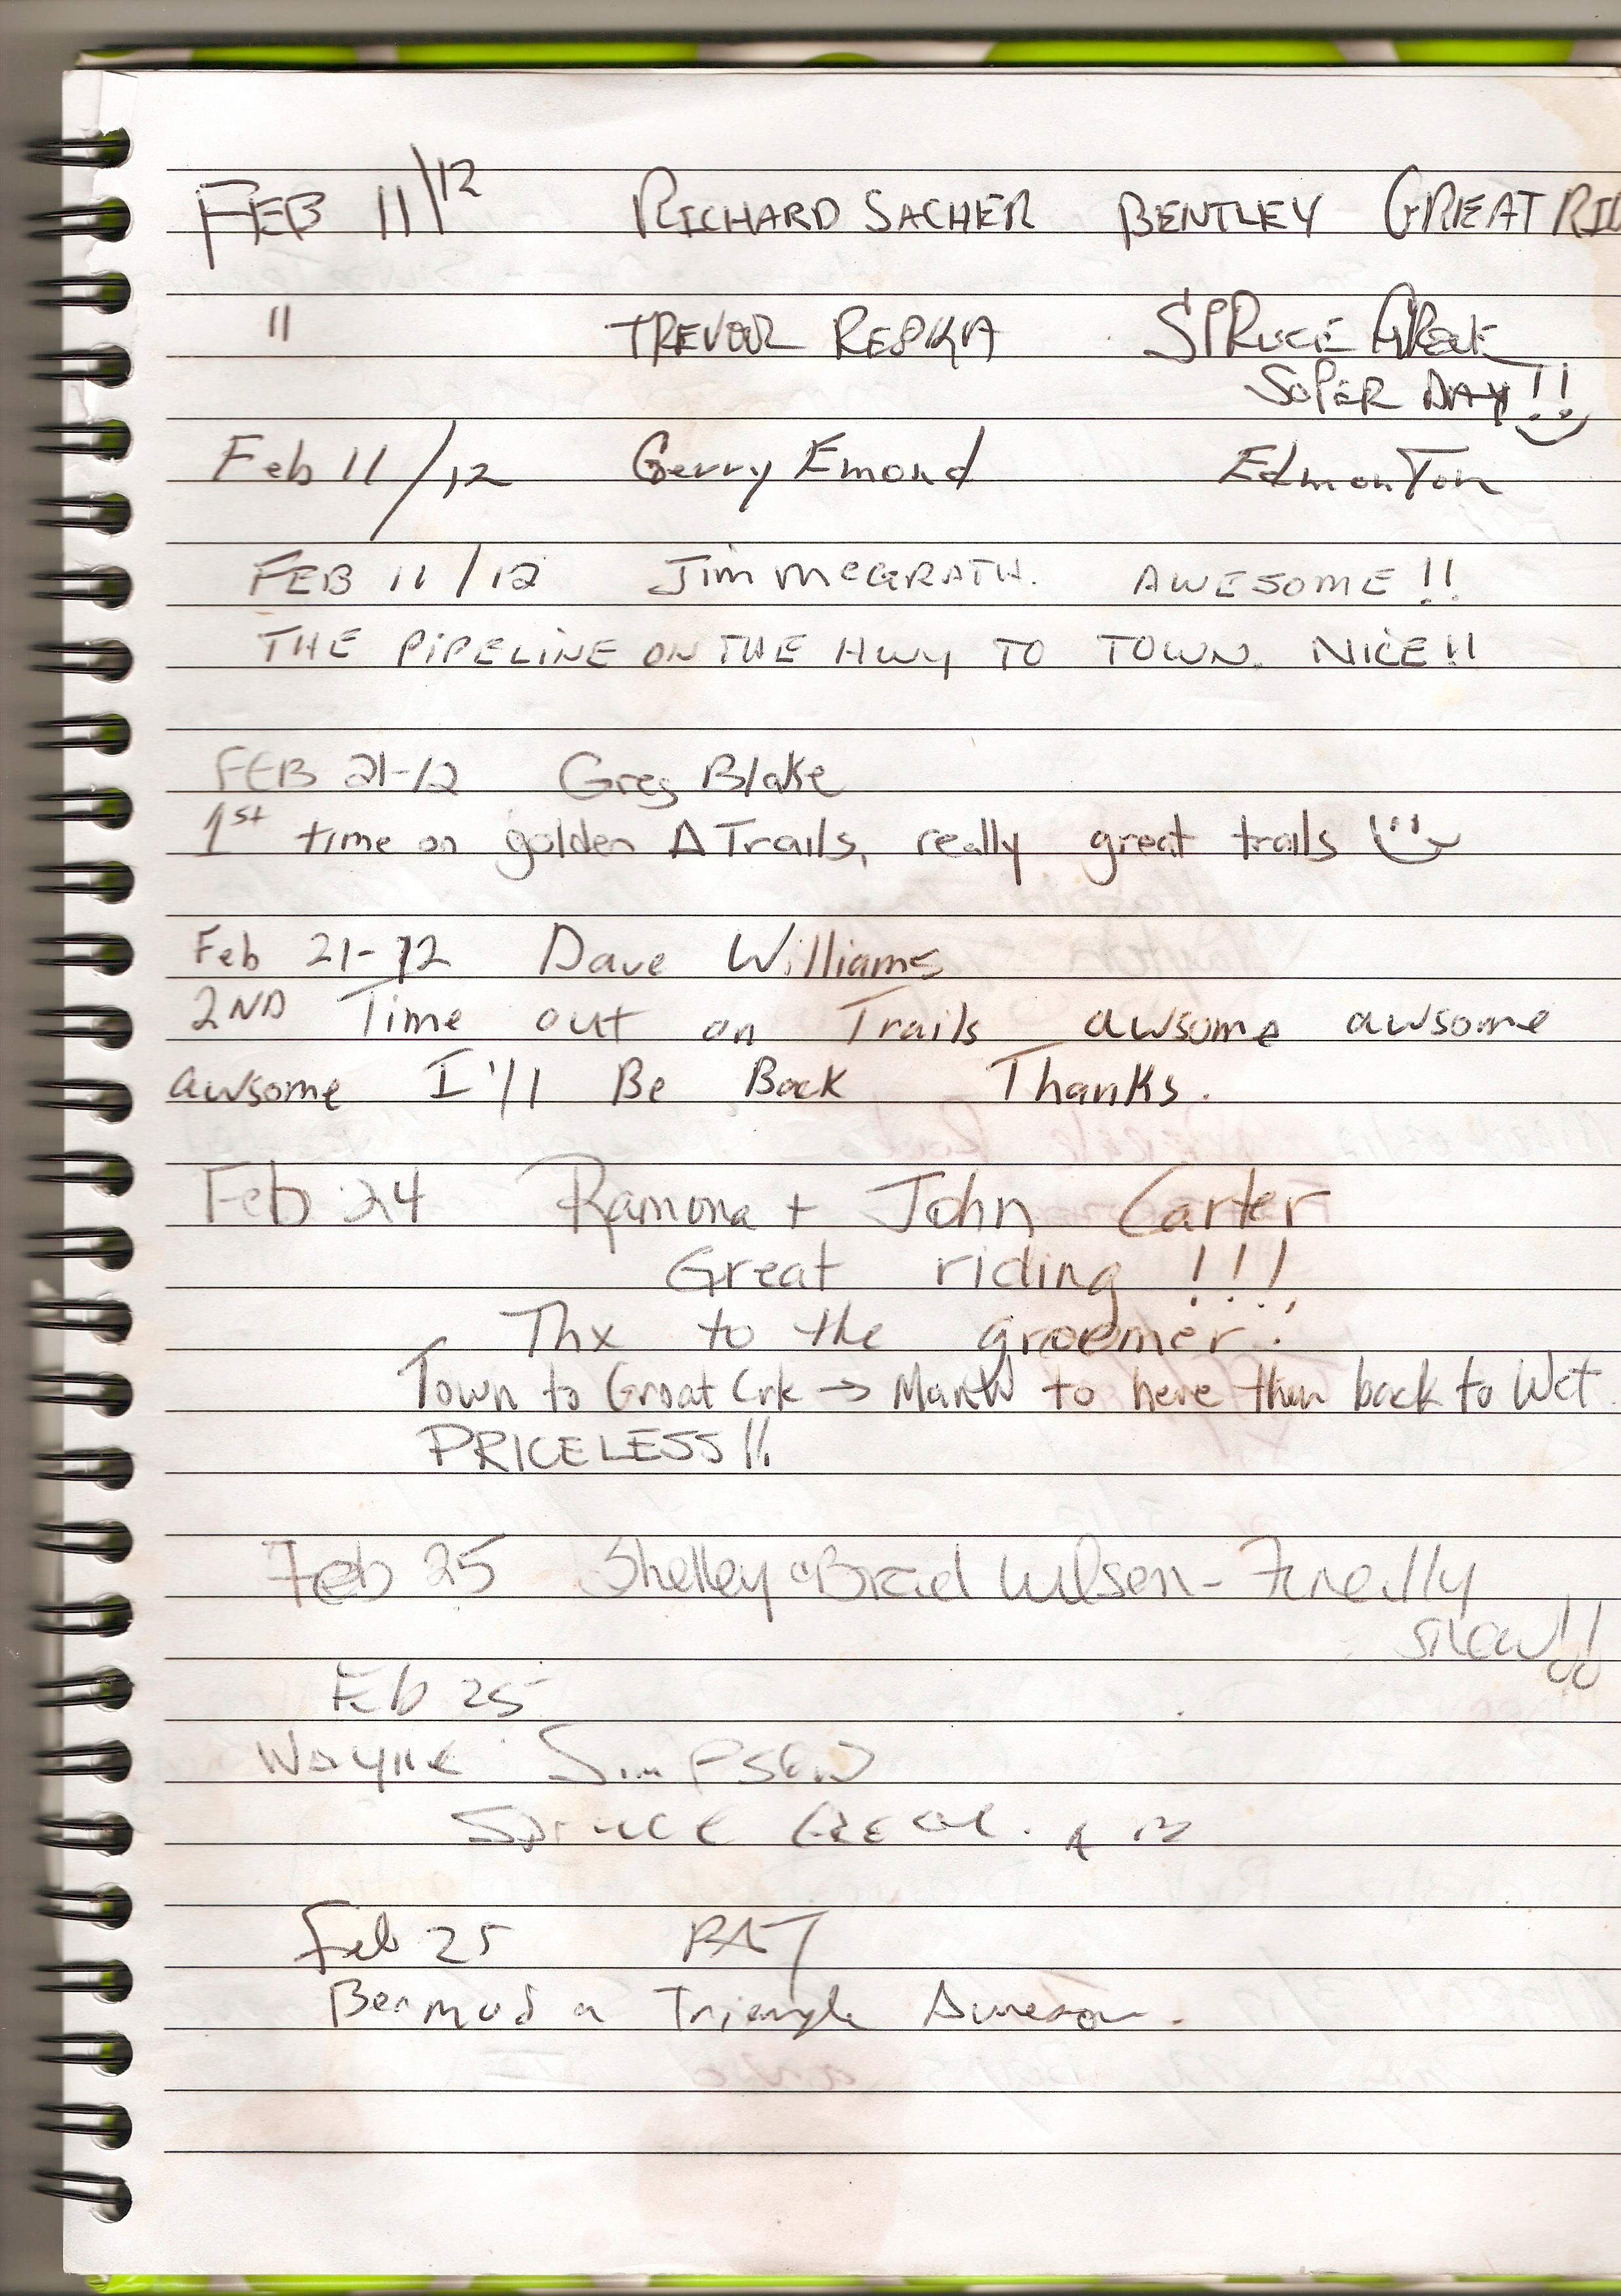 FEB 11/12 RICHARD SACHER BENTLEY GREAT RI
" TREVOR REPKA SPRUCE GROVE
SUPER DAY!!
Feb 11/12 Gerry Emond Edmonton
FEB 11/12 Jim McGRATH. AWESOME!!
THE PIPELINE ON THE HWY TO TOWN. NICE!!
FEB 21-12 Greg Blake
1st time on golden Δ Trails, really great trails
Feb 21-12 Dave Williams
2ND Time out on Trails awsome awsome
awsome I'll Be Back Thanks.
Feb 24 Ramona + John Carter
Great riding!!!
Thx to the groomer!
Town to Groat Crk → to here then back to Wct.
PRICELESS!!
Feb 25 Shelley & Brad Wilson - Finally
snow!!
Feb 25
Wayne Simpson
Spruce Grove. AB
Feb 25 PAT
Bermuda Triangle Awesom.